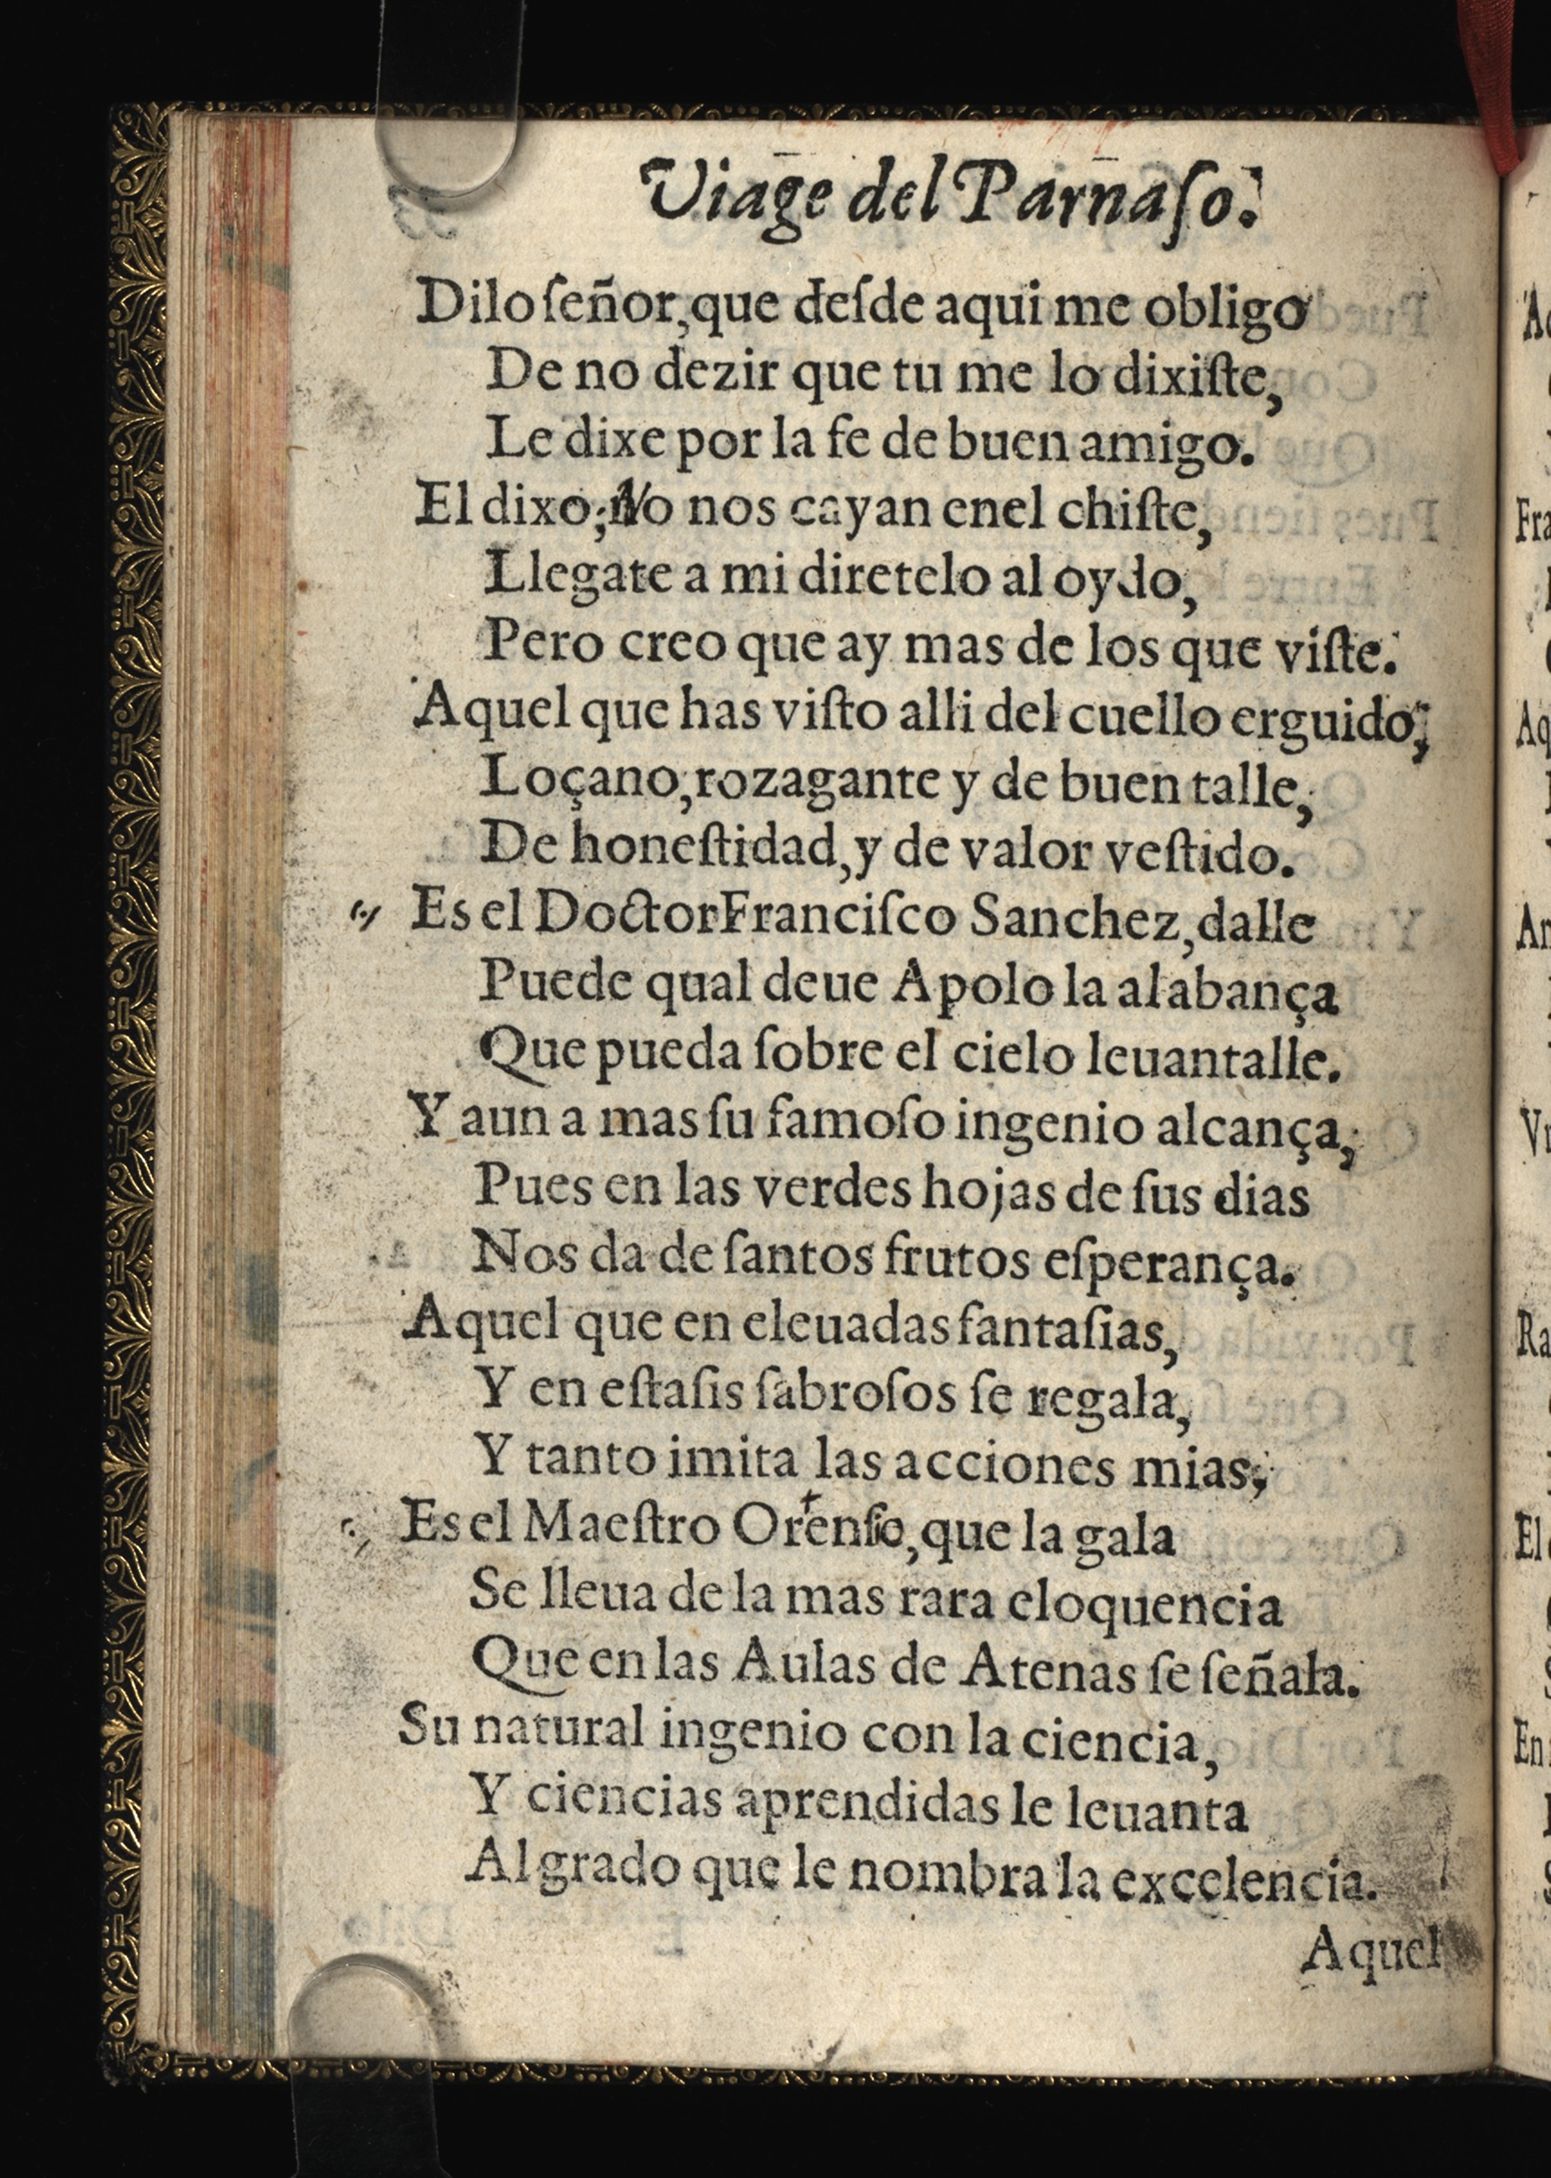 Viage del Parnaſo.
Dilo ſeñor, que deſde aqui me obligo
De no dezir que tu me lo dixiſte,
Le dixe por la fe de buen amigo.
El dixo; No nos cayan enel chiſte,
Llegate a mi diretelo al oydo,
Pero creo que ay mas de los que viſte.
Aquel que has viſto alli del cuello erguido,
Loçano, rozagante y de buen talle,
De honeſtidad, y de valor veſtido.
Es el Doctor Franciſco Sanchez, dalle
Puede qual deue Apolo la alabança
Que pueda ſobre el cielo leuantalle.
Y aun a mas ſu famoſo ingenio alcança,
Pues en las verdes hojas de ſus dias
Nos da de ſantos frutos eſperança.
Aquel que en eleuadas fantaſias,
Y en eſtaſis ſabroſos ſe regala,
Y tanto imita las acciones mias,
Es el Maeſtro Orenſio, que la gala
Se lleua de la mas rara eloquencia
Que en las Aulas de Atenas ſe ſeñala.
Su natural ingenio con la ciencia,
Y ciencias aprendidas le leuanta
Al grado que le nombra la excelencia.
Aquel